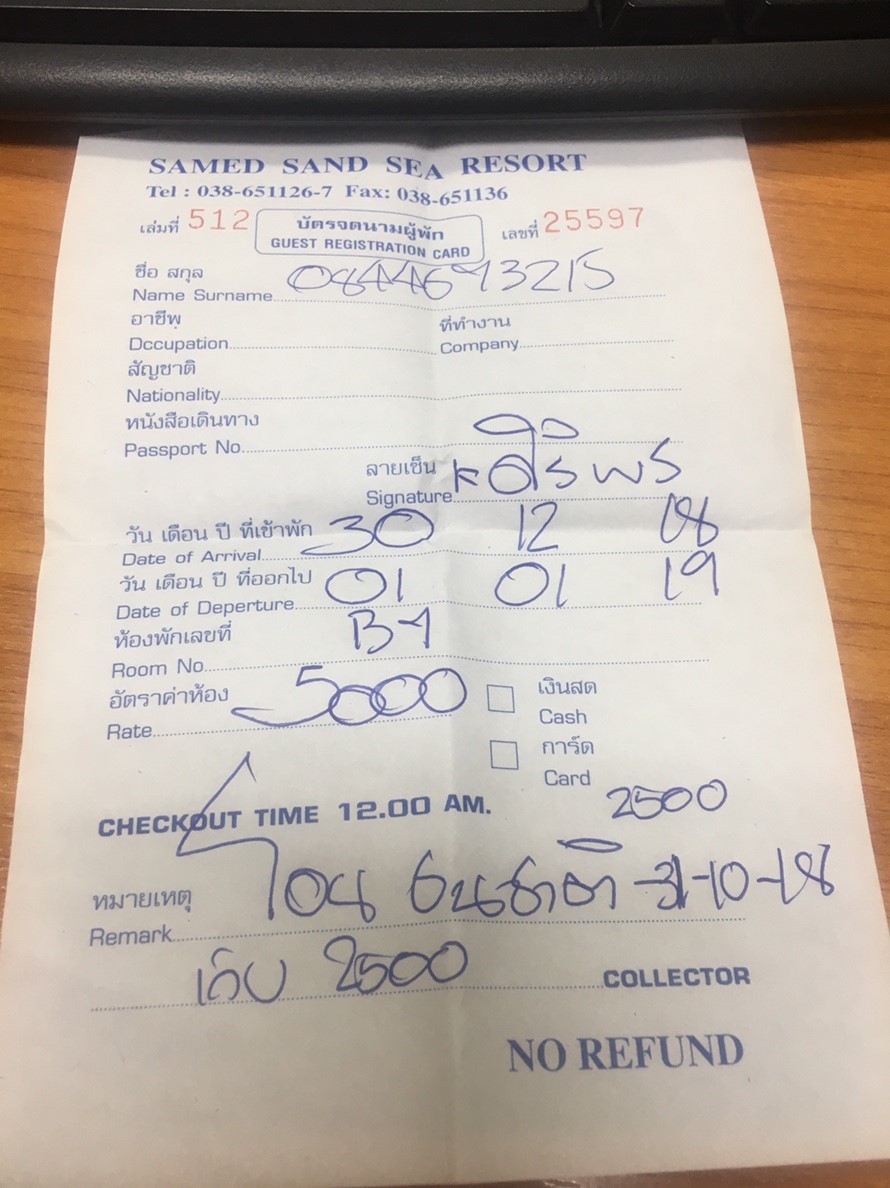 SAMED SAND SEA RESORT
Tel : 038-651126-7 Fax: 038-651136
เล่มที่ 512 บัตรจดนามผู้พัก เลขที่ 25597
GUEST REGISTRATION CARD
ชื่อ สกุล
Name Surname 0844693215
อาชีพ ที่ทำงาน
Dccupation Company
สัญชาติ
Nationality
หนังสือเดินทาง
Passport No.
ลายเซ็น
Signature ศิริพร
วัน เดือน ปี ที่เข้าพัก 30 12 18
Date of Arrival
วัน เดือน ปี ที่ออกไป 01 01 19
Date of Deperture
ห้องพักเลขที่
Room No.
อัตราค่าห้อง 5000 เงินสด
Rate Cash
การ์ด
Card
2500
CHECKOUT TIME 12.00 AM.
หมายเหตุ โอน ธนชาติ -31-10-18
Remark
เก็บ 2500 COLLECTOR
NO REFUND